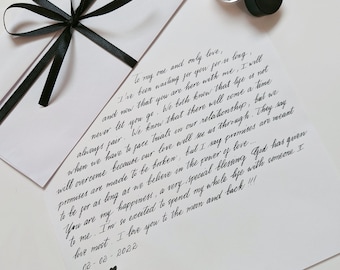 To my one and only love,
I've been waiting for you for so long,
and now that you are here with me, I will
never let you go. We both know that life is not
always fair. We know that there will come a time
when we have to face trials in our relationship, but we
will overcome because our love will see us through. They say
promises are made to be broken, but I say promises are meant
to be for as long as we believe in the power of love...
You are my happiness, a very special blessing God has given
to me. I'm so excited to spend my whole life with someone I
love most. I love you to the moon and back!!!
02-02-2022